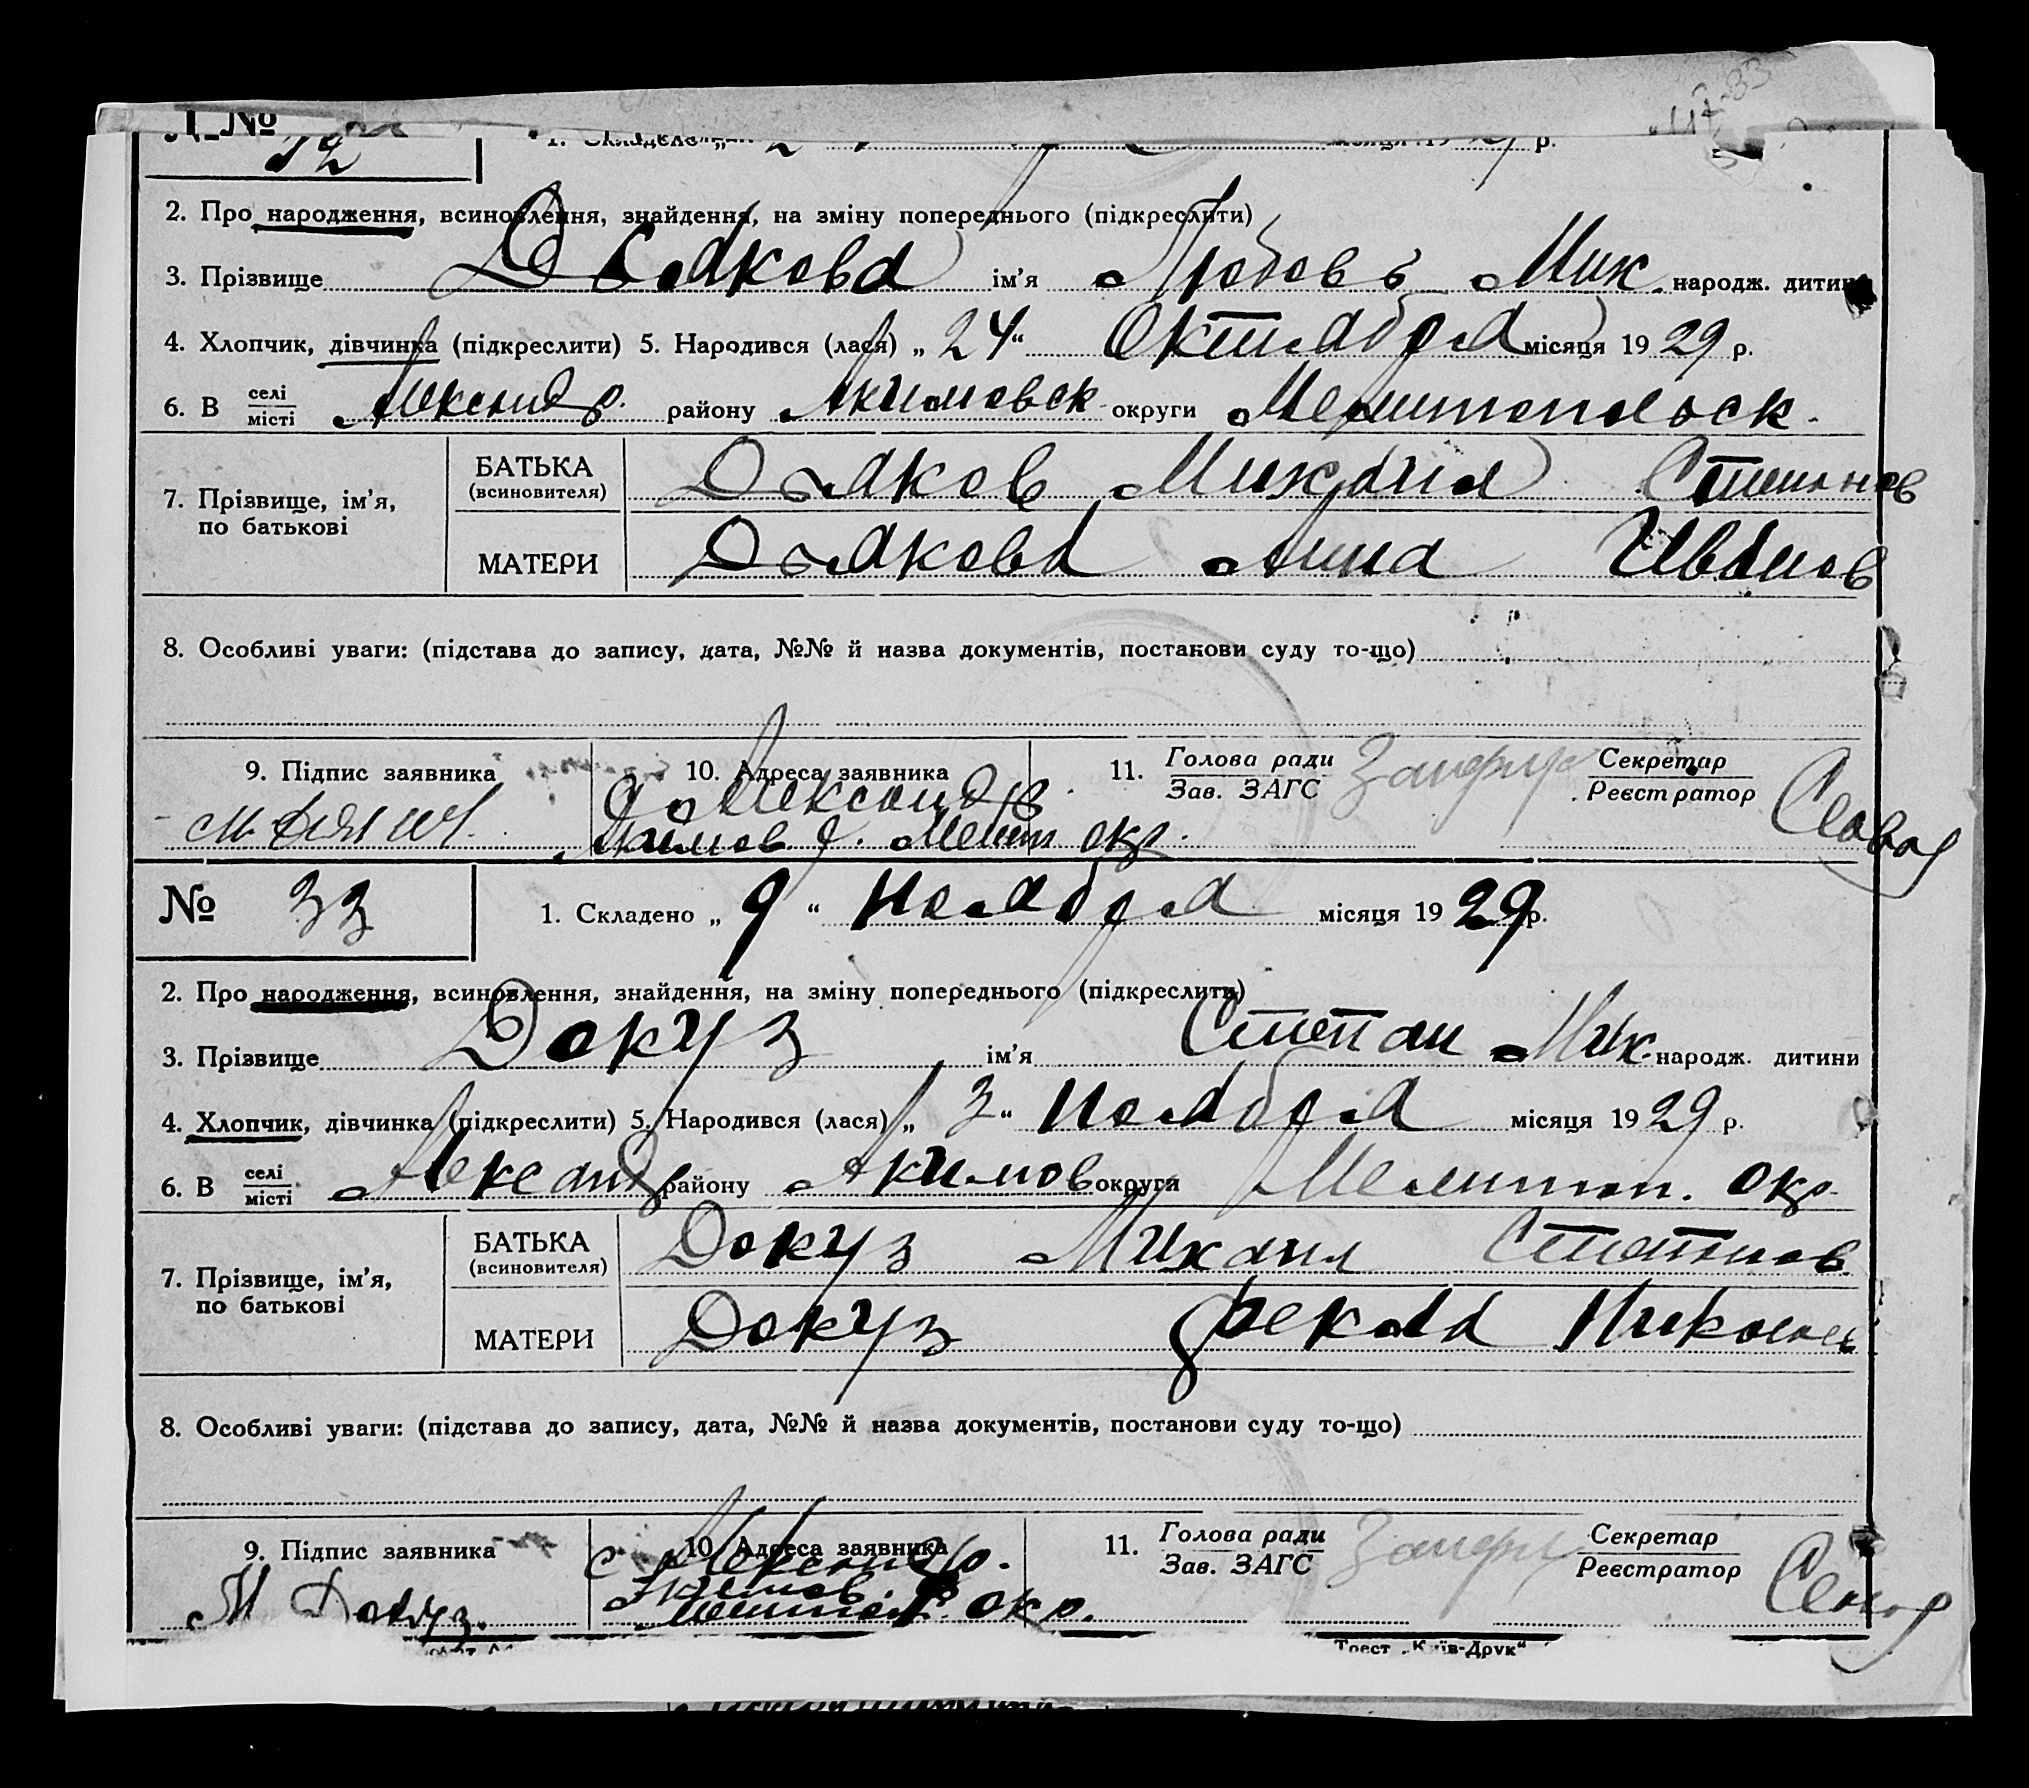 №
32
1. Складено „ місяця 19 р.
2. Про народження, всиновлення, знайдення, на зміну попереднього (підкреслити)
3. Прізвище Дьякова ім'я Любовь Мих. народж. дитини
4. Хлопчик, дівчинка (підкреслити) 5. Народився (лася) „ 24 “ Октября місяця 19 29 р.
6. В селі/місті Александр. району Акимовск округи Мелитопольск.
7. Прізвище, ім'я, по батькові
БАТЬКА (всиновителя) Дьяков Михаил Степанов
МАТЕРИ Дьякова Анна Иванов
8. Особливі уваги: (підстава до запису, дата, №№ й назва документів, постанови суду то-що)
9. Підпис заявника 10. Адреса заявника 11. Голова ради/Зав. ЗАГС Секретар/Реєстратор
Александр.
Акимов р. Мелит окр.
№ 33 1. Складено „ 9 “ Ноября місяця 19 29 р.
2. Про народження, всиновлення, знайдення, на зміну попереднього (підкреслити)
3. Прізвище Докуз ім'я Степан Мих. народж. дитини
4. Хлопчик, дівчинка (підкреслити) 5. Народився (лася) „ 3 “ Ноября місяця 19 29 р.
6. В селі/місті Александр району Акимов округи Мелитоп. окр.
7. Прізвище, ім'я, по батькові
БАТЬКА (всиновителя) Докуз Михаил Степанов
МАТЕРИ Докуз Фекла Николаев
8. Особливі уваги: (підстава до запису, дата, №№ й назва документів, постанови суду то-що)
9. Підпис заявника 10. Адреса заявника 11. Голова ради/Зав. ЗАГС Секретар/Реєстратор
М Докуз. с Александр.
Акимов.
Мелитоп. окр.
Трест „Київ-Друк“